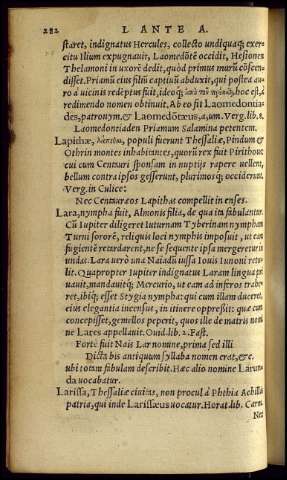 282 L ANTE A.
staret, indignatus Hercules, collecto undiquaq; exer-
citu Ilium expugnauit, Laomedōtē occidit, Hesionen
Thelamoni in uxorē dedit, quòd primus murū cōscen-
disset. Priamū eius filiū captiuū abduxit, qui postea au-
ro à uicinis redēptus fuit, ideoq; hoc est, à
redimendo nomen obtinuit. Ab eo fit Laomedontia-
des, patronym. & Laomedōtæus, a, um. Verg. lib. 8.
Laomedontiaden Priamum Salamina petentem.
Lapithæ, λάπιθαι, populi fuerunt Thessaliæ, Pindum &
Othrin montes inhabitantes, quorū rex fuit Pirithous
cui cum Centauri sponsam in nuptijs rapere uellent,
bellum contra ipsos gesserunt, plurimosq; occiderunt.
Verg. in Culice:
Nec Centauros Lapithas compellit in enses.
Lara, nympha fuit, Almonis filia, de qua ita fabulantur.
Cū Iupiter diligeret Iuturnam Tyberinam nympham
Turni sororē, reliquis loci nymphis imposuit, ut eam
fugientē retardarent, ne se sequente ipsa mergeretur in
undas. Lara uerò una Naiadū iussa Iouis Iunoni retu-
lit. Quapropter Iupiter indignatus Laram lingua pri-
uauit, mandauitq; Mercurio, ut eam ad inferos trahe-
ret, ibiq; esset Stygia nympha: qui cum illam duceret,
eius elegantia incensus, in itinere oppressit: quæ cum
concepisset, gemellos peperit, quos ille de matris nomi
ne Lares appellauit. Ouid. lib. 2. Fast.
Forte fuit Nais Lar nomine, prima sed illi
Dicta bis antiquum syllaba nomen erat, &c.
ubi totam fabulam describit. Hæc alio nomine Larun-
da uocabatur.
Larissa, Thessaliæ ciuitas, non procul à Phthia Achillis
patria, qui inde Larissæus uocatur. Horat. lib. Carm.
Nec